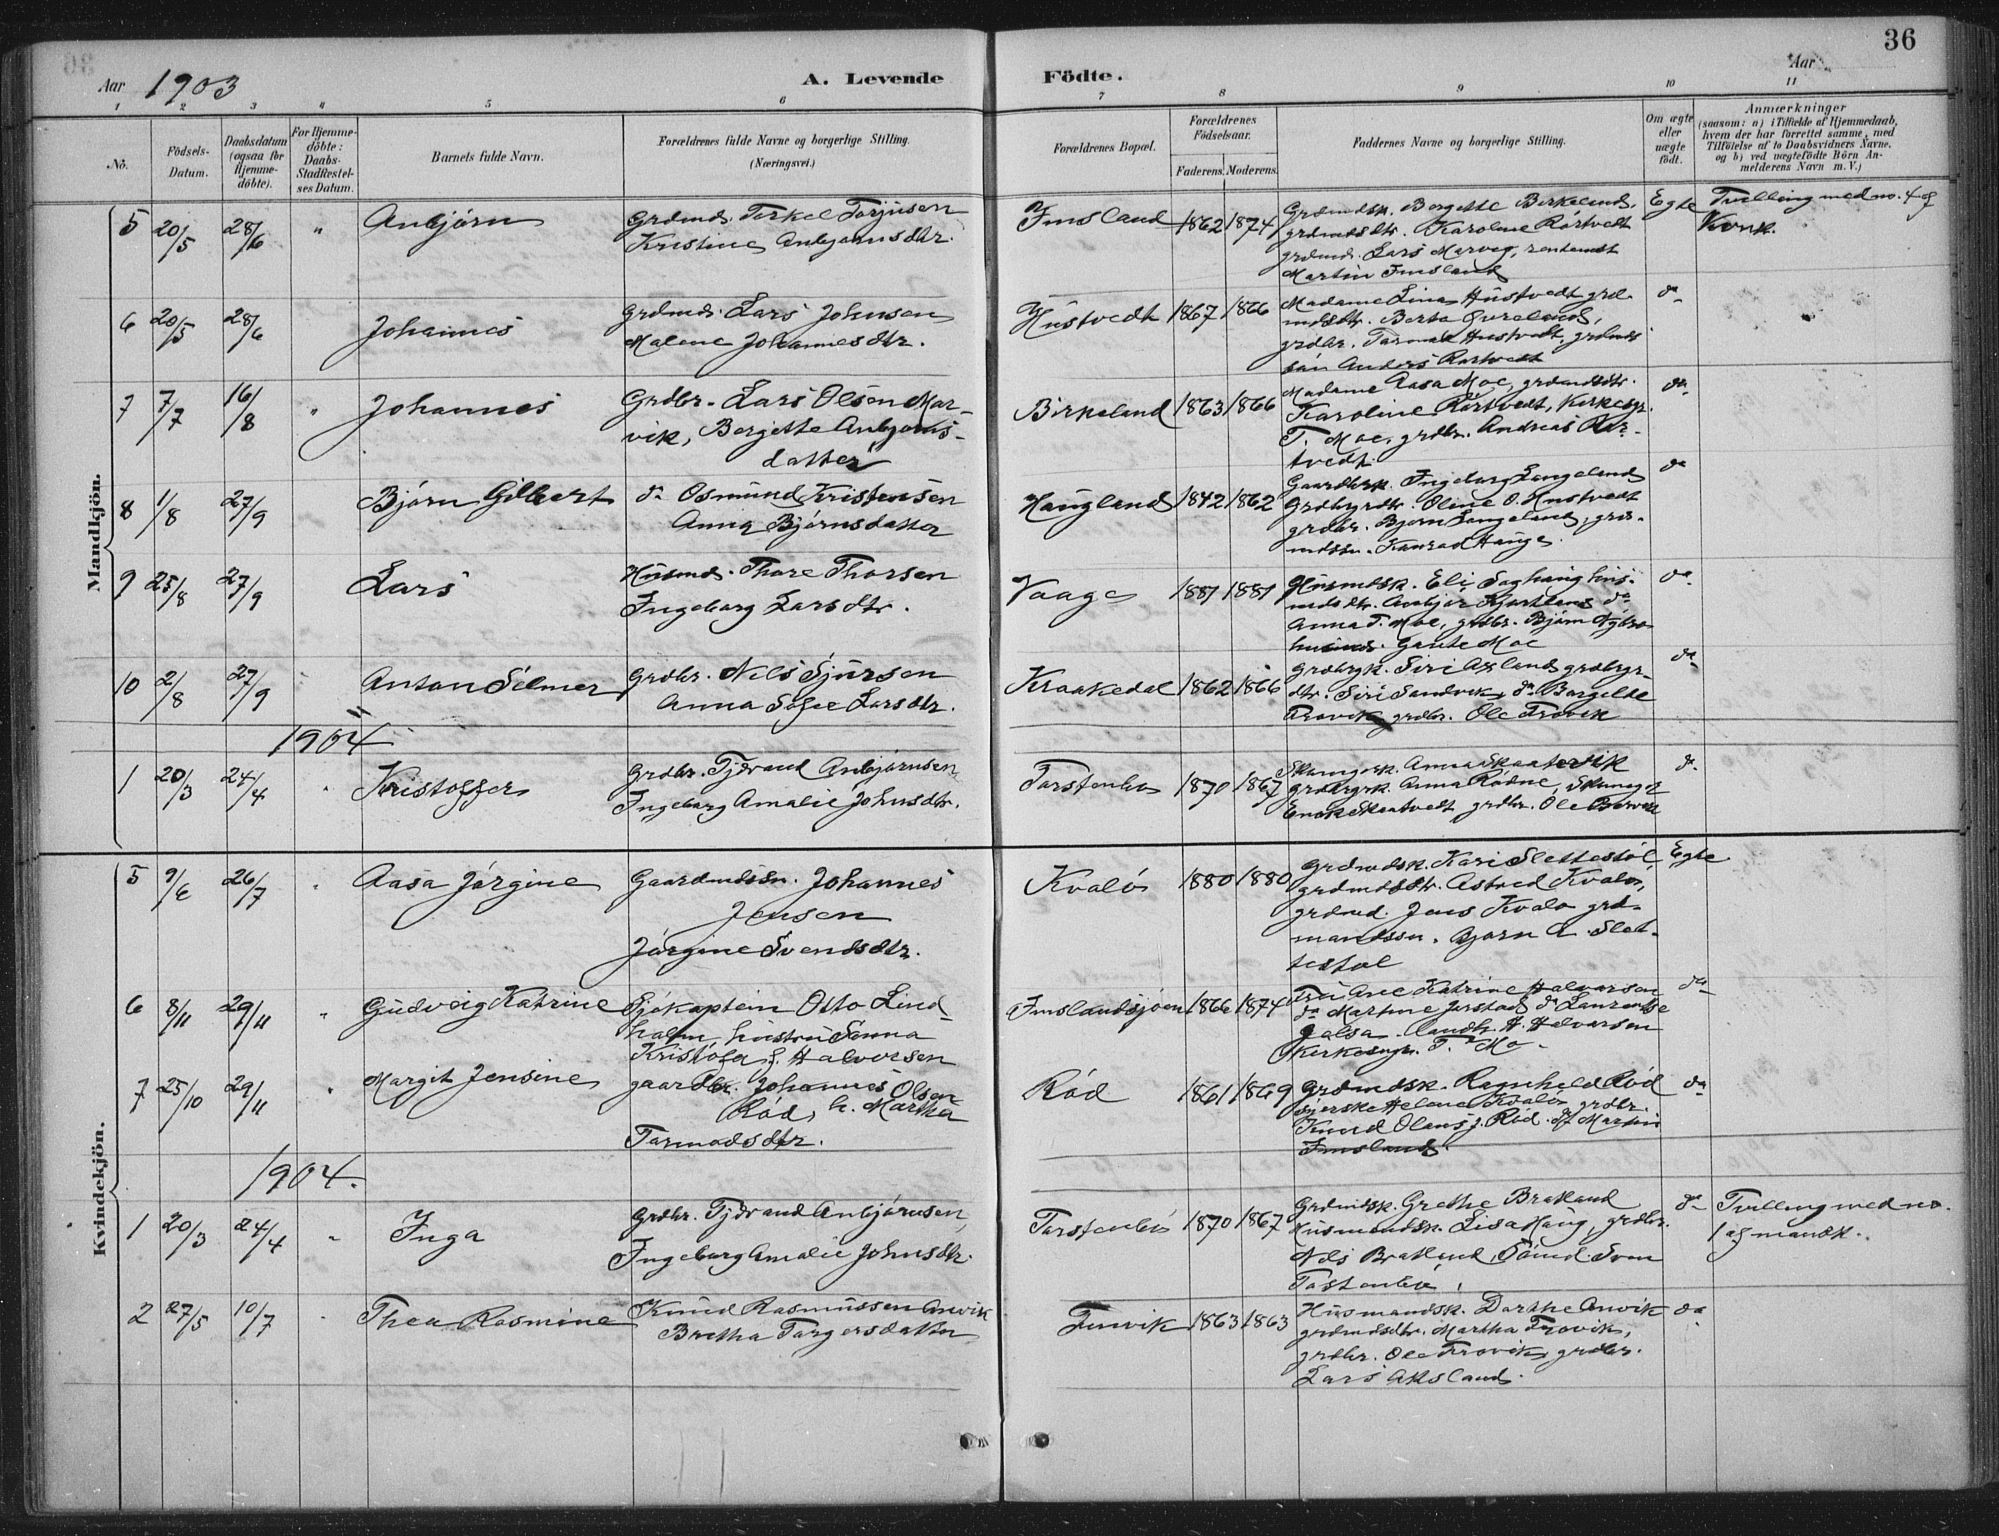 36
Aar 1903
A. Levende Födte.
Aar
1 2 3 4 5 6 7 8 9 10 11
No.
Födsels-Datum.
Daabsdatum (ogsaa for Hjemme-döbte).
For Hjemme-döbte: Daabs-Stadfæstel-ses Datum.
Barnets fulde Navn.
Forældrenes fulde Navne og borgerlige Stilling.
(Næringsvei.)
Forældrenes Bopæl.
Forældrenes Födselsaar.
Faderens. Moderens.
Faddernes Navne og borgerlige Stilling.
Om ægte eller uægte födt.
Anmærkninger
(saasom: a) i Tilfælde af Hjemmedaab,
hvem der har forrettet samme, med
Tilföielse af to Daabsvidners Navne,
og b) ved uægtefödte Börn An-
melderens Navn m. V.)
Mandkjön.
5 20/5 28/6 " Anbjørn
Grdmd. Torkel Torjusen
Kristine Anbjørnsdtr.
Imsland 1862 1874
Grdmdsk. Borgette Birkeland,
grdmdsdtr. Karoline Rørtvedt
grdmd. Lars Marveg,
Martin Imsland
Egte
Tvilling med no. 4 af
Kvnk.
6 20/5 28/6 Johannes
Grdmd. Lars Johnsen
Malene Johannesdtr.
Hustvedt 1867 1866
Madame Lina Hustvedt grd-
mdsdtr. Berta
grdbr. Tormod Hustvedt, grdmds
søn Anders Rørtvedt
do
7 7/7 16/8 " Johannes
Grdbr. Lars Olsen Mar-
vik, Bergitte Anbjørns-
datter
Birkeland 1863 1866
Madame Aasa Moe, grdmdsdtr.
Karoline Rørtvedt, Kirkesgr.
T. Moe, grdbr. Andreas Rør-
tvedt
do
8 1/8 27/9 Bjørn Gilbert
do Osmund Kristensen
Anna Bjørnsdatter
Haugland 1842 1862
Gaardbrk. Ingeborg Langeland
Grdbrgrdtr. Oline O. Hustvedt
grdbr. Bjørn Langeland, grd-
mdssn. Konrad Hauge.
do
9 25/8 27/9 Lars
Husmd. Thore Thorsen
Ingeborg Larsdtr.
Vaage 1881 1881
Husmdsk. Eli Saghaug hus-
mdsdtr. Anbjør do
Anna T. Moe, grdbr. Bjørn
husmd. Gaute Moe
do
10 2/8 27/9 " Anton Selmer
Grdbr. Nils Sjursen
Anna Sofie Larsdtr.
Kraakedal 1862 1866
Grdbrgk. Siri Axland grdbrgr-
dtr. Siri Sandvik, do Borgilde
Frøvik, grdbr. Ole Frøvik
do
1904
1 20/3 24/4 " Kristoffer
Grdbr. Tjerand Anbjørnsen,
Ingeborg Amalie Johnsdtr.
Torstenbø 1870 1867
Anna Skaatevik
grdbrgk. Anna Rødne,
Enok Skeatvedt grdbr. Ole
do
Kvindekjön.
5 9/6 26/7 " Aasa Jørgine
Gaardmdssn. Johannes
Jensen
Jørgine Svendsdtr.
Kvalø 1880 1880
Grdmdsk. Kari Slettestøl
grdmdsdtr. Astred Kvalø,
grdmd. Jens Kvalø grd-
mandssn. Bjørn Slet-
testøl
Egte
6 8/11 29/11 " Gudveig Katrine
Sjökaptein Otto Lind
holm, hustru Anna
Kristofa f. Halvorsen
Imslandsjøen 1866 1874
Fru Ane Katrine Halvorsen
do Martine Jørstad do Laurentse
Jelsa. Landh. H. Halvorsen
Kirkesngr. T. Mo.
do
7 25/10 29/11 " Margit Jensine
gaardbr. Johannes Olsen
Rød, h. Martha
Tormodsdtr.
Rød 1861 1869
Grdmdsk. Ragnhild Rød
Helene Kvalø, grdbr.
Knud Olaus J. Rød. do Martin
Imsland
do
1904.
1 20/3 24/4 " Inga
Grdbr. Tjerand Anbjørnsen,
Ingeborg Amalie Johnsdtr.
Torstenbø 1870 1867
Grdmdsk. Grethe Brakland
Husmandsk. Lisa Haug, grdbr.
Nils Brakland, Sven
Tostenbø,
do
Tvilling med no.
1 af mandk.
2 27/5 10/7 " Thea Rasmine
Knud Rasmussen Anvik
Bretha Torgersdatter
1863 1863
Husmandsk. Dorthe Anvik
grdmdsdtr. Martha Frøvik,
grdbr. Ole Frøvik, grdbr.
Lars Aksland.
do